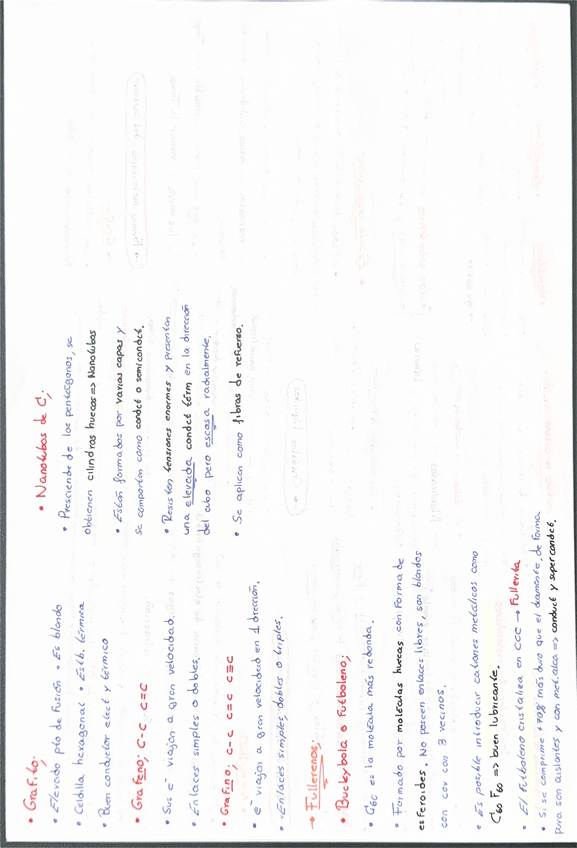 • Grafito;
• Elevado pto de fusión • Es blando
• Celdilla hexagonal • Estb. térmica
• Buen conductor eléct y térmico
• Grafeno; C-C C=C
• Sus e⁻ viajan a gran velocidad.
• Enlaces simples o dobles.
• Grafino; C-C C=C C≡C
• e⁻ viajan a gran velocidad en 1 dirección.
• Enlaces simples, dobles o triples.
→ Fullerenos;
• Buckybola o Futboleno;
• C60 es la molécula más redonda.
• Formado por moléculas huecas con forma de
esferoides. No poseen enlaces libres, son blandos
con cov con 3 vecinos.
• Es posible introducir cationes metálicos como
C60 F60 => buen lubricante.
• El futboleno cristaliza en CCC → Fullerita
• Si se comprime +70% más duro que el diamante, de forma
pura son aislantes y con met. alca => conduct y supercondct.
• Nanotubos de C;
• Presciende de los pentágonos, se
obtienen cilindros huecos => Nanotubos
• Están formados por varias capas y
se comportan como condct o semicondct.
• Resisten tensiones enormes y presentan
una elevada condct térm en la dirección
del cubo pero escasa radialmente.
• Se aplican como fibras de refuerzo.